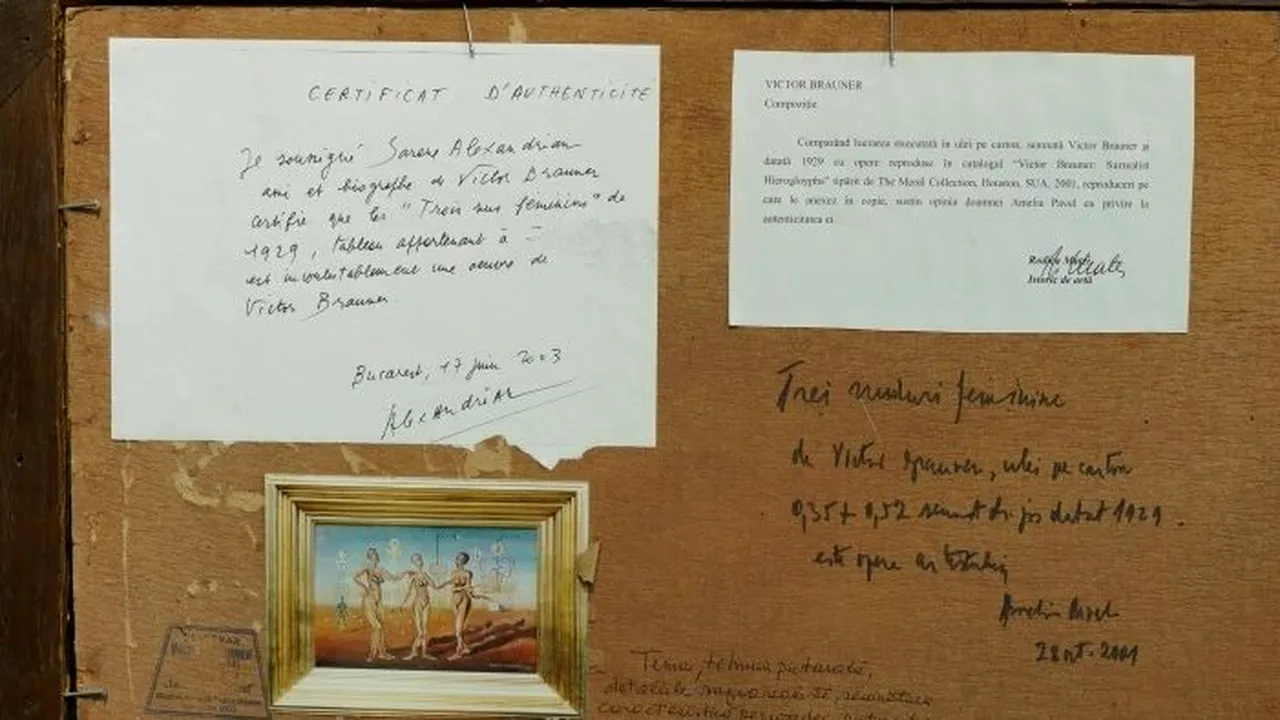 CERTIFICAT D'AUTHENTICITE
Je soussigné Sarane Alexandrian
ami et biographe de Victor Brauner
certifie que les "Trois nus féminins" de
1929, tableau appartenant à
est incontestablement une oeuvre de
Victor Brauner
Bucarest, 17 juin 2003
Alexandrian
VICTOR BRAUNER
Compoziție
Comparând lucrarea executată în ulei pe carton, semnată Victor Brauner și
datată 1929 cu opere reproduse în catalogul "Victor Brauner: Surrealist
Hieroglyphs" tipărit de The Menil Collection, Houston, SUA, 2001, reproduceri pe
care le anexez în copie, susțin opinia doamnei Amelia Pavel cu privire la
autenticitatea ei.
Istoric de artă
Trei nuduri feminine
de Victor Brauner, ulei pe carton
0,35 + 0,52 semnat dr. jos datat 1929.
este opera artistului
Amelia Pavel
28 oct. 2001
Tema, tehnica picturală,